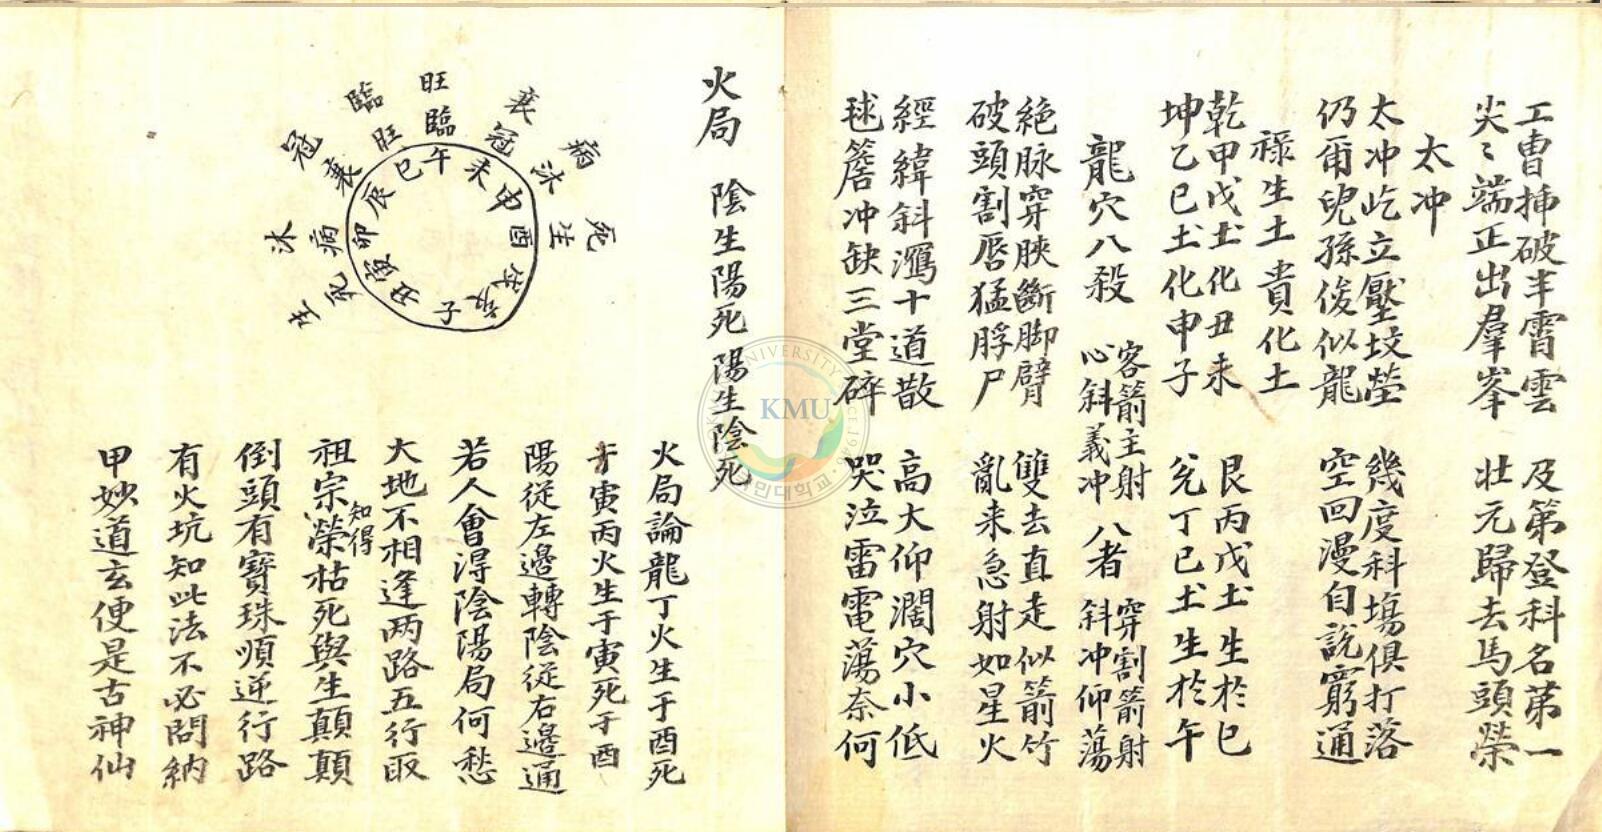 工曹揷破半霄雲 及第登科名第一
尖〻端正出羣峯 壮元歸去馬頭榮
太冲
太冲屹立壓坟塋 幾度科塲俱打落
仍甭皃孫俊似龍 空回漫自說窮通
祿生土貴化土
乾甲戊土化丑未 艮丙戊土生於巳
坤乙巳土化申子 兊丁巳土生於午
龍穴八殺 客箭主射 八者 穿割箭射
心斜義冲 斜冲仰蕩
絶脉穿脥斷脚臂 雙去直走似箭竹
破頭割唇猛脬尸 亂来急射如星火
經緯斜瀉十道散 高大仰濶穴小低
毬簷冲缺三堂碎 哭泣雷電蕩奈何
火局 陰生陽死 陽生陰死
旺
臨 衰
冠 病
沐 死
生
臨
旺 冠
衰 沐
病 生
死
午 未 申 酉 戌 亥 子 丑 寅 卯 辰 巳
火局論龍丁火生于酉死
于寅丙火生于寅死于酉
陽従左邉轉陰従右邉通
若人會得陰陽局何愁
大地不相逢两路五行取
知得
祖宗榮枯死與生顛顛
倒頭有寶珠順逆行路
有火坑知此法不必問納
甲妙道玄便是古神仙
KMU
UNIVERSITY
SINCE 1946
국민대학교